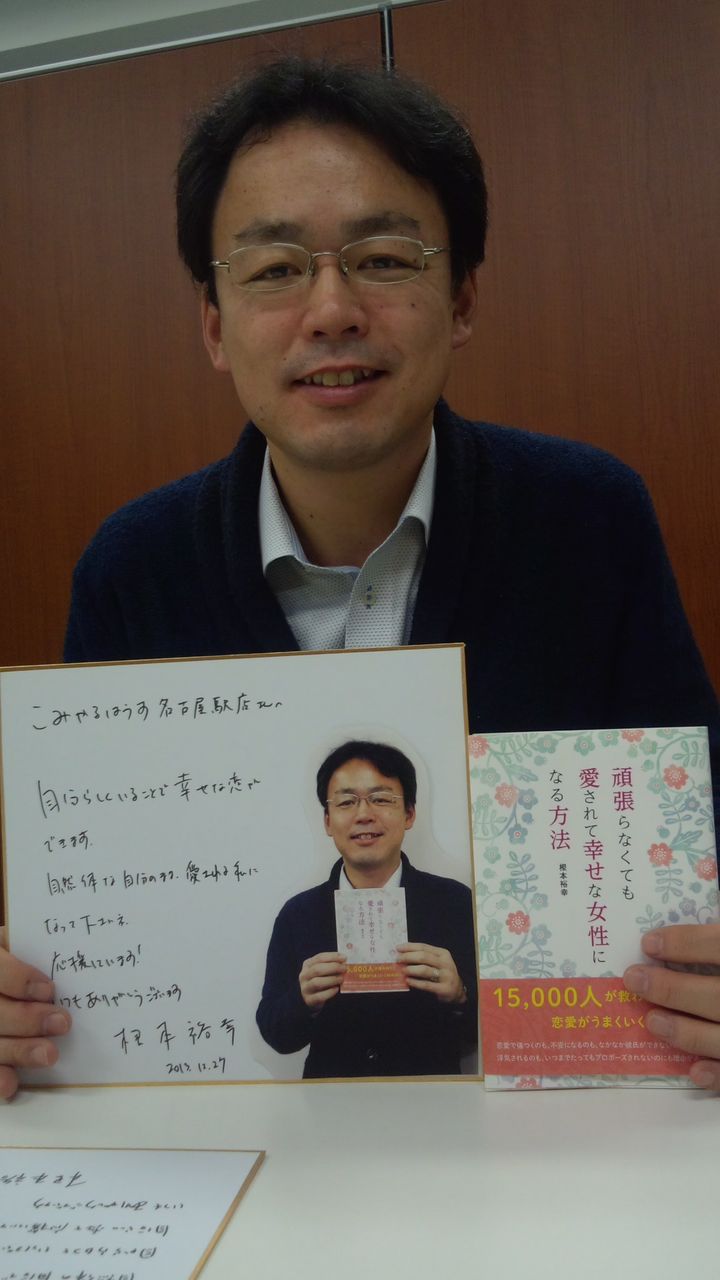 こみやるはうす名古屋駅店さんへ
自分らしくいることで幸せな恋が
できます。
自然体な自分のまま、愛される私に
なって下さいネ
応援しています!
いつもありがとうございます
根本裕幸
2013.12.27
頑張らなくても
愛されて幸せな女性に
なる方法
根本裕幸
15,000人が救わ
恋愛がうまくいく
恋愛で傷つくのも、不安になるのも、なかなか彼氏ができない
浮気されるのも、いつまでたってもプロポーズされないのにも理由が
頑張らなくても
愛されて幸せな女性に
なる方法
15,000人が
恋愛がうまくいく